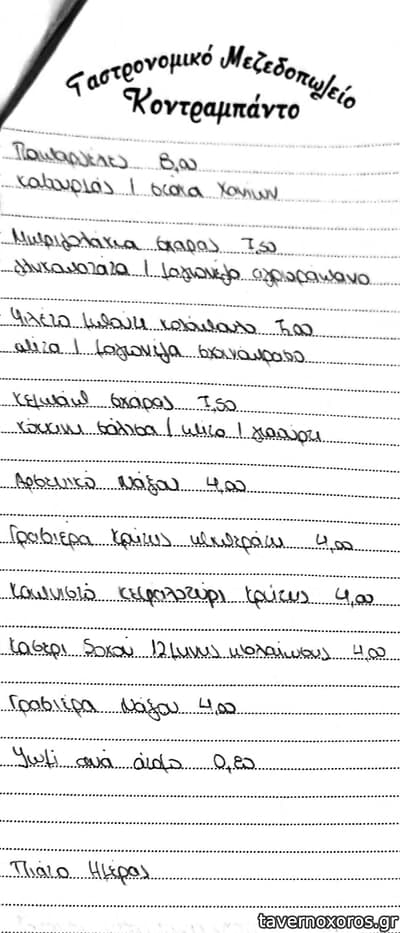 Γαστρονομικό Μεζεδοπωλείο
Κοντραμπάντο
8,00
καβουρμάς / στάκα Χανίων
Μπριζολάκια σχάρας 7,50
γλυκοπατάτα / μαγιονέζα αγριοράπανο
Φιλέτο μπούτι κοτόπουλο 7,00
πίτα / μαγιονέζα
κεμπάπ σχάρας 7,50
κόκκινη σάλτσα / πίτα / γιαούρτι
Αρσενικό Νάξου 4,00
Γραβιέρα Κρήτης 4,00
Καπνιστό κεφαλοτύρι Κρήτης 4,00
Κασέρι 12μηνης ωρίμανσης 4,00
Γραβιέρα Νάξου 4,00
Ψωμί ανά άτομο 0,80
Πιάτο Ημέρας
tavernoxoros.gr